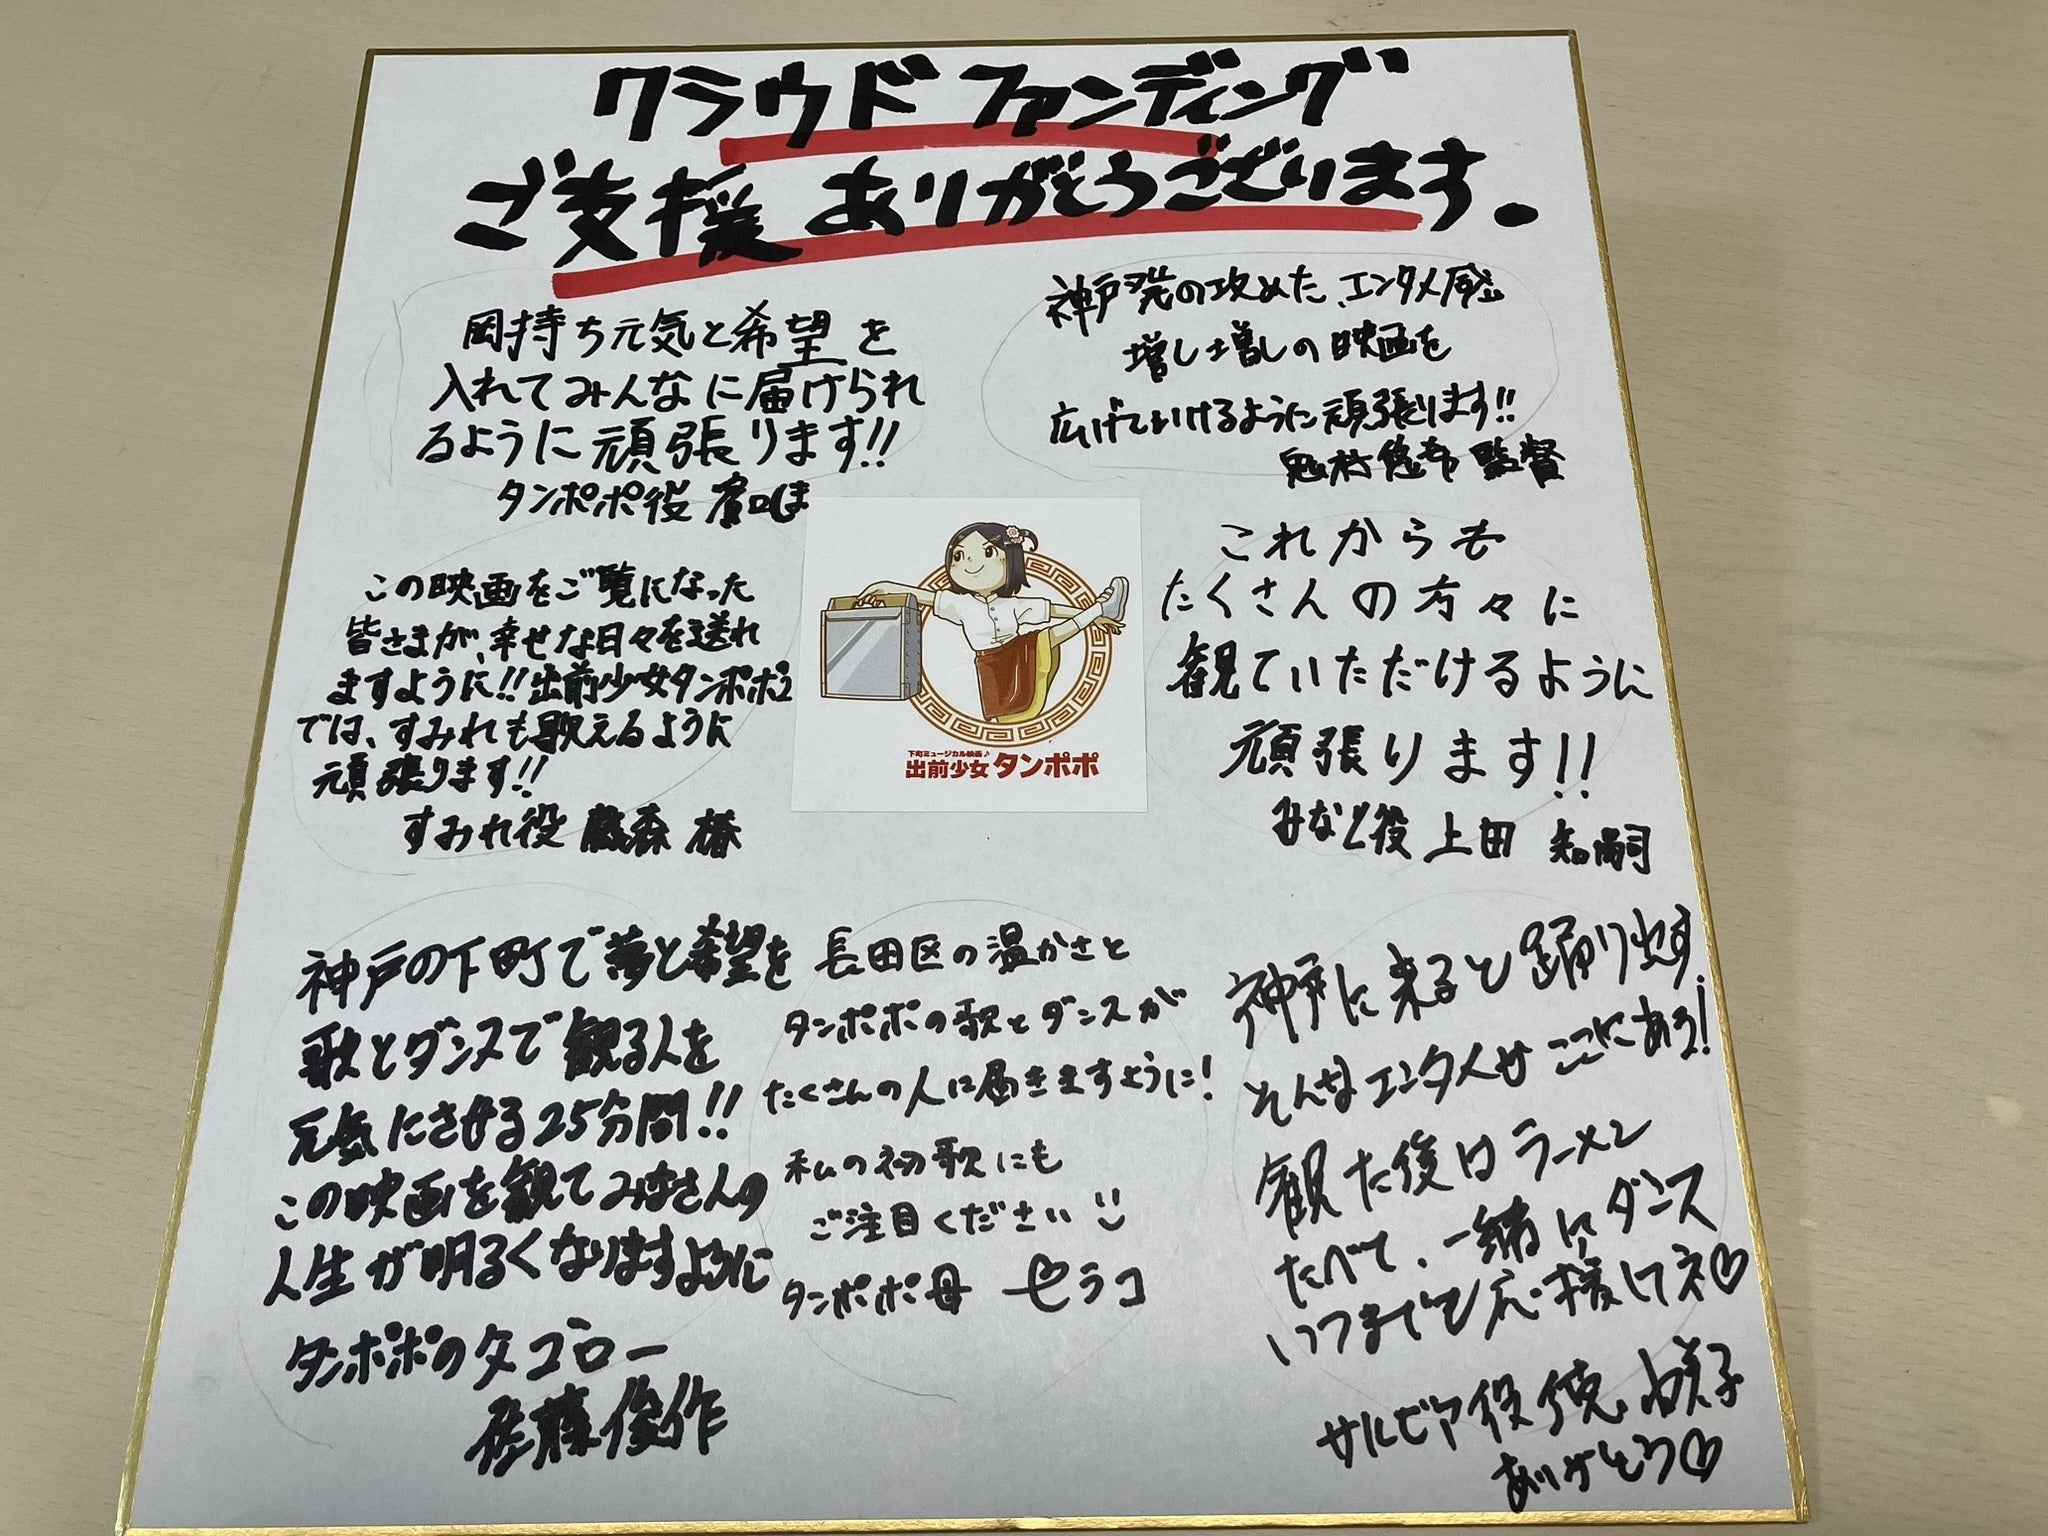 クラウドファンディング
ご支援ありがとうございます。
岡持ち元気と希望を
入れてみんなに届けられ
るように頑張ります!!
タンポポ役 濱口しま
神戸発の攻めた、エンタメ感
増し増しの映画を
広げていけるように頑張ります!!
悠希 監督
この映画をご覧になった
皆さまが、幸せな日々を送れ
ますように!!出前少女タンポポ2
では、すみれも歌えるように
頑張ります!!
すみれ役 藤森 椿
下町ミュージカル映画♪
出前少女タンポポ
これからも
たくさんの方々に
観ていただけるように
頑張ります!!
みなと役 上田 知嗣
神戸の下町で夢と希望を
歌とダンスで観る人を
元気にさせる25分間!!
この映画を観てみなさんの
人生が明るくなりますように
タンポポのタコロー
佐藤俊作
長田区の温かさと
タンポポの歌とダンスが
たくさんの人に届きますように!
私の初歌にも
ご注目ください
タンポポ母 セラコ
神戸に来ると踊り出す
そんなエンタメがここにある!
観た後はラーメン
たべて、一緒にダンス
いつまでも応援してネ♡
サルビア役 徳 由美子
ありがとう♡